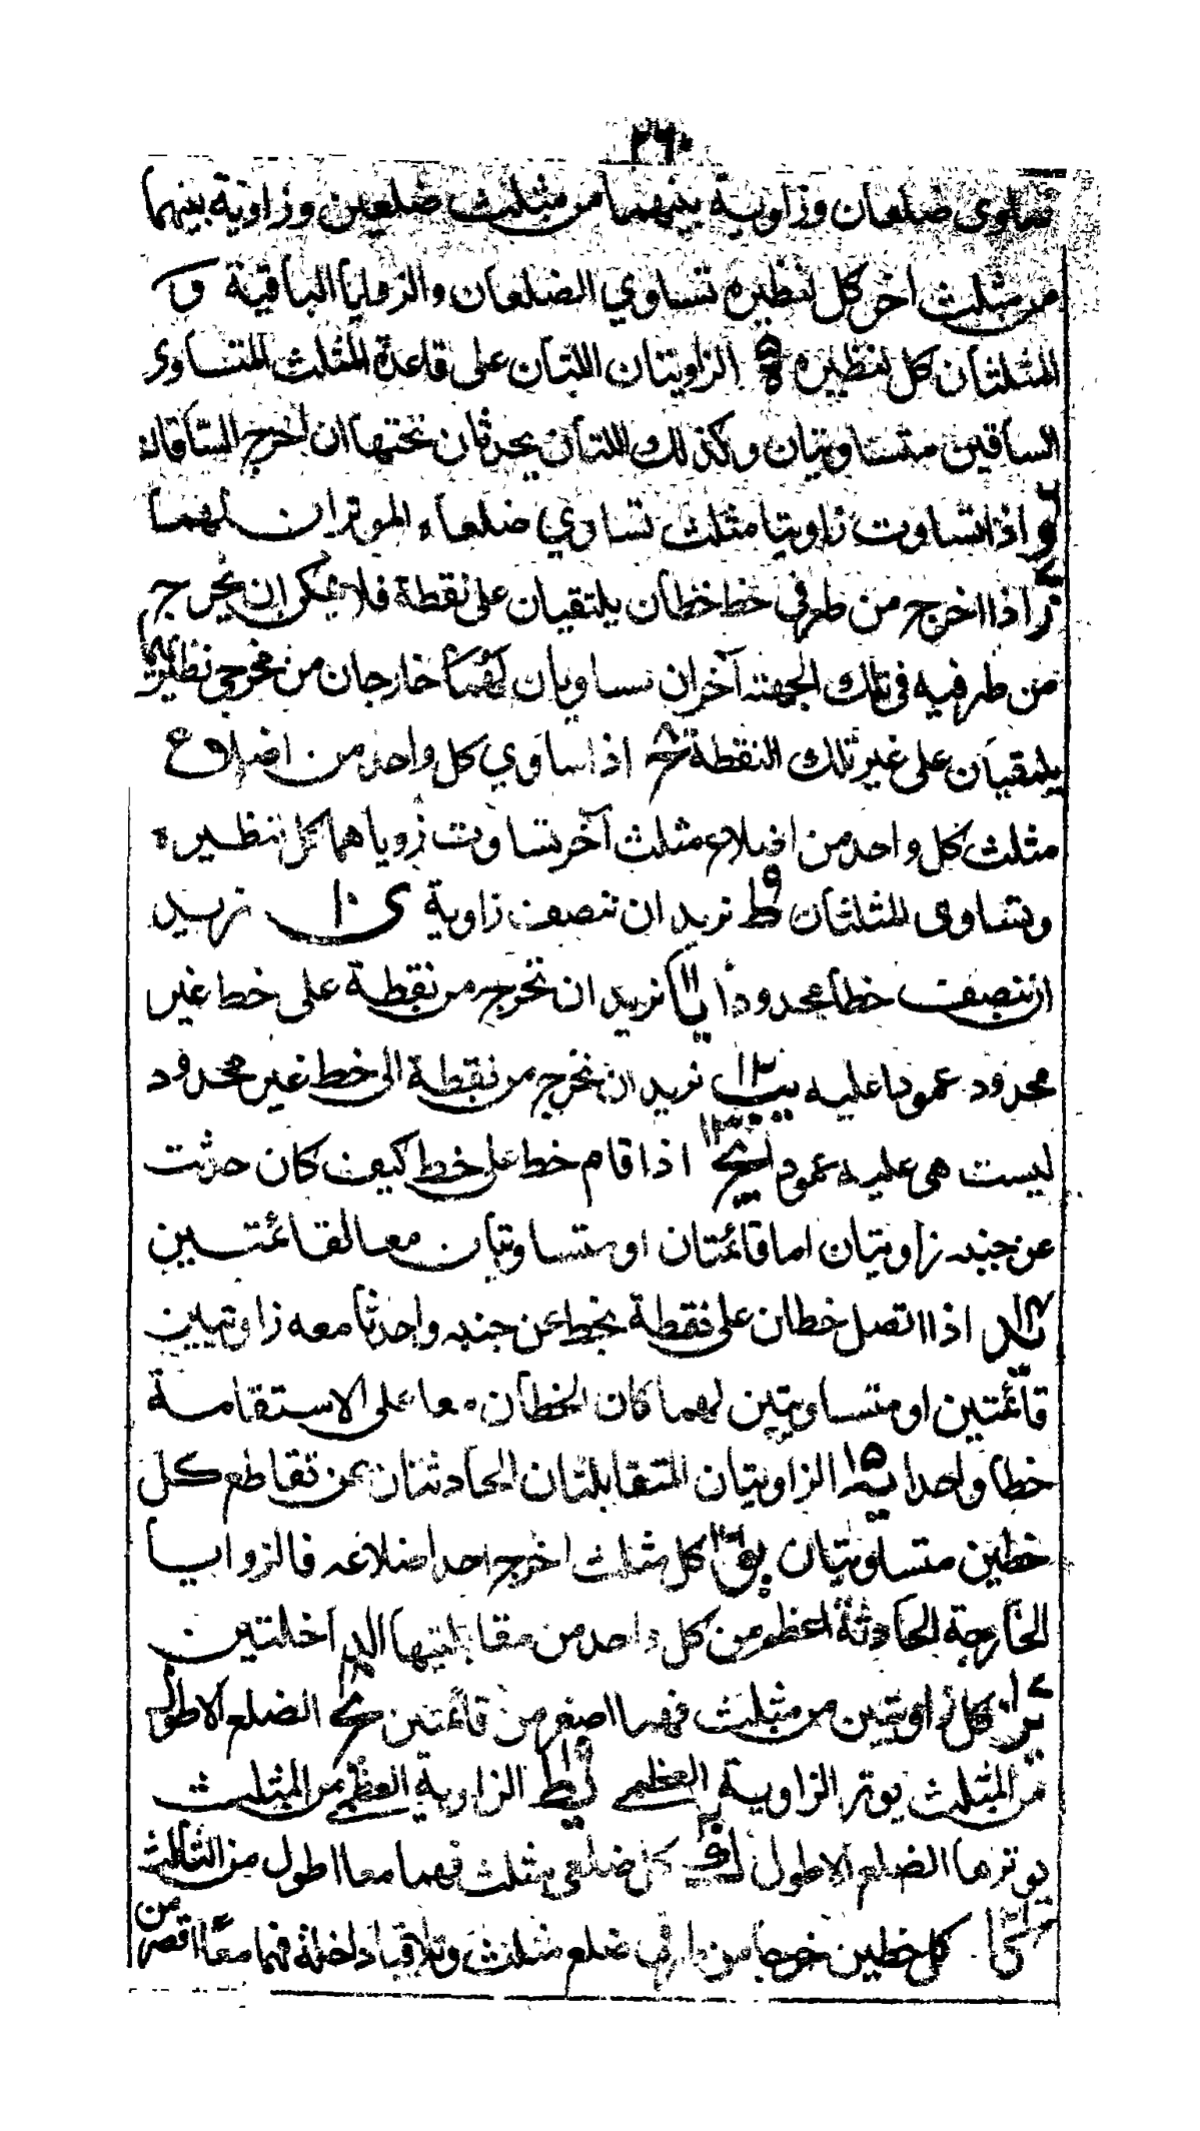 ٢٦٠
تساوى ضلعان وزاوية بينهما من مثلث ضلعين وزاوية بينهما
من مثلث اخر كل لنظيره تساوي الضلعان والزوايا الباقية و
المثلثان كل لنظيره ه الزاويتان اللتان على قاعدة المثلث المتساوى
الساقين متساويتان وكذلك اللتان يحدثان تحتها ان اخرج الساقان
و اذا تساوت زاويتا مثلث تساوي ضلعاه الموتران لهما
ز اذا اخرج من طرفي خط خطان يلتقيان على نقطة فلا يمكن ان يخرج
من طرفيه فى تلك الجهته آخران يساويان لهما خارجان من مخرجي نظيرهما
يلتقيان على غير تلك النقطة ح ٨ اذا ساوي كل واحد من اضلاع
مثلث كل واحد من اضلاع مثلث آخر تساوت زوياهما كل لنظيره
وتساوى المثلثان ط ٩ نريد ان ننصف زاوية ى ١٠ نريد
ان ننصف خطا محدودا يا ١١ نريد ان نخرج من نقطة على خط غير
محدود عمودا عليه يب ١٢ نريد ان نخرج من نقطة الى خط غير محدود
ليست هى عليه عمود يج ١٣ اذا قام خط على خط كيف كان حدثت
عن جنبيه زاويتان اما قائمتان او متساويتان معا لقائمتين
يد ١٤ اذا اتصل خطان على نقطة بخط عن جنبيه واحدثا معه زاويتين
قائمتين او متساويتين لهما كان الخطان معا على الاستقامة
خطا واحدا يه ١٥ الزاويتان المتقابلتان الحادثتان عن تقاطع كل
خطين متساويتان يو ١٦ كل مثلث اخرج احد اضلاعه فالزوايا
الخارجة الحادثة اعظم من كل واحد من مقابلتيها الداخلتين
يز كل زاويتين من مثلث فهما اصغر من قائمتين يح ١٨ الضلع الاطول
من المثلث يوتر الزاوية العظمى يط ١٩ الزاوية العظمى من المثلث
يوترها الضلع الاطول ك ٢٠ كل ضلعي مثلث فهما معا اطول من الثالث
كا ٢١ كل خطين خرجا من طرفي ضلع مثلث وتلاقيا داخله فهما معا اقصر من